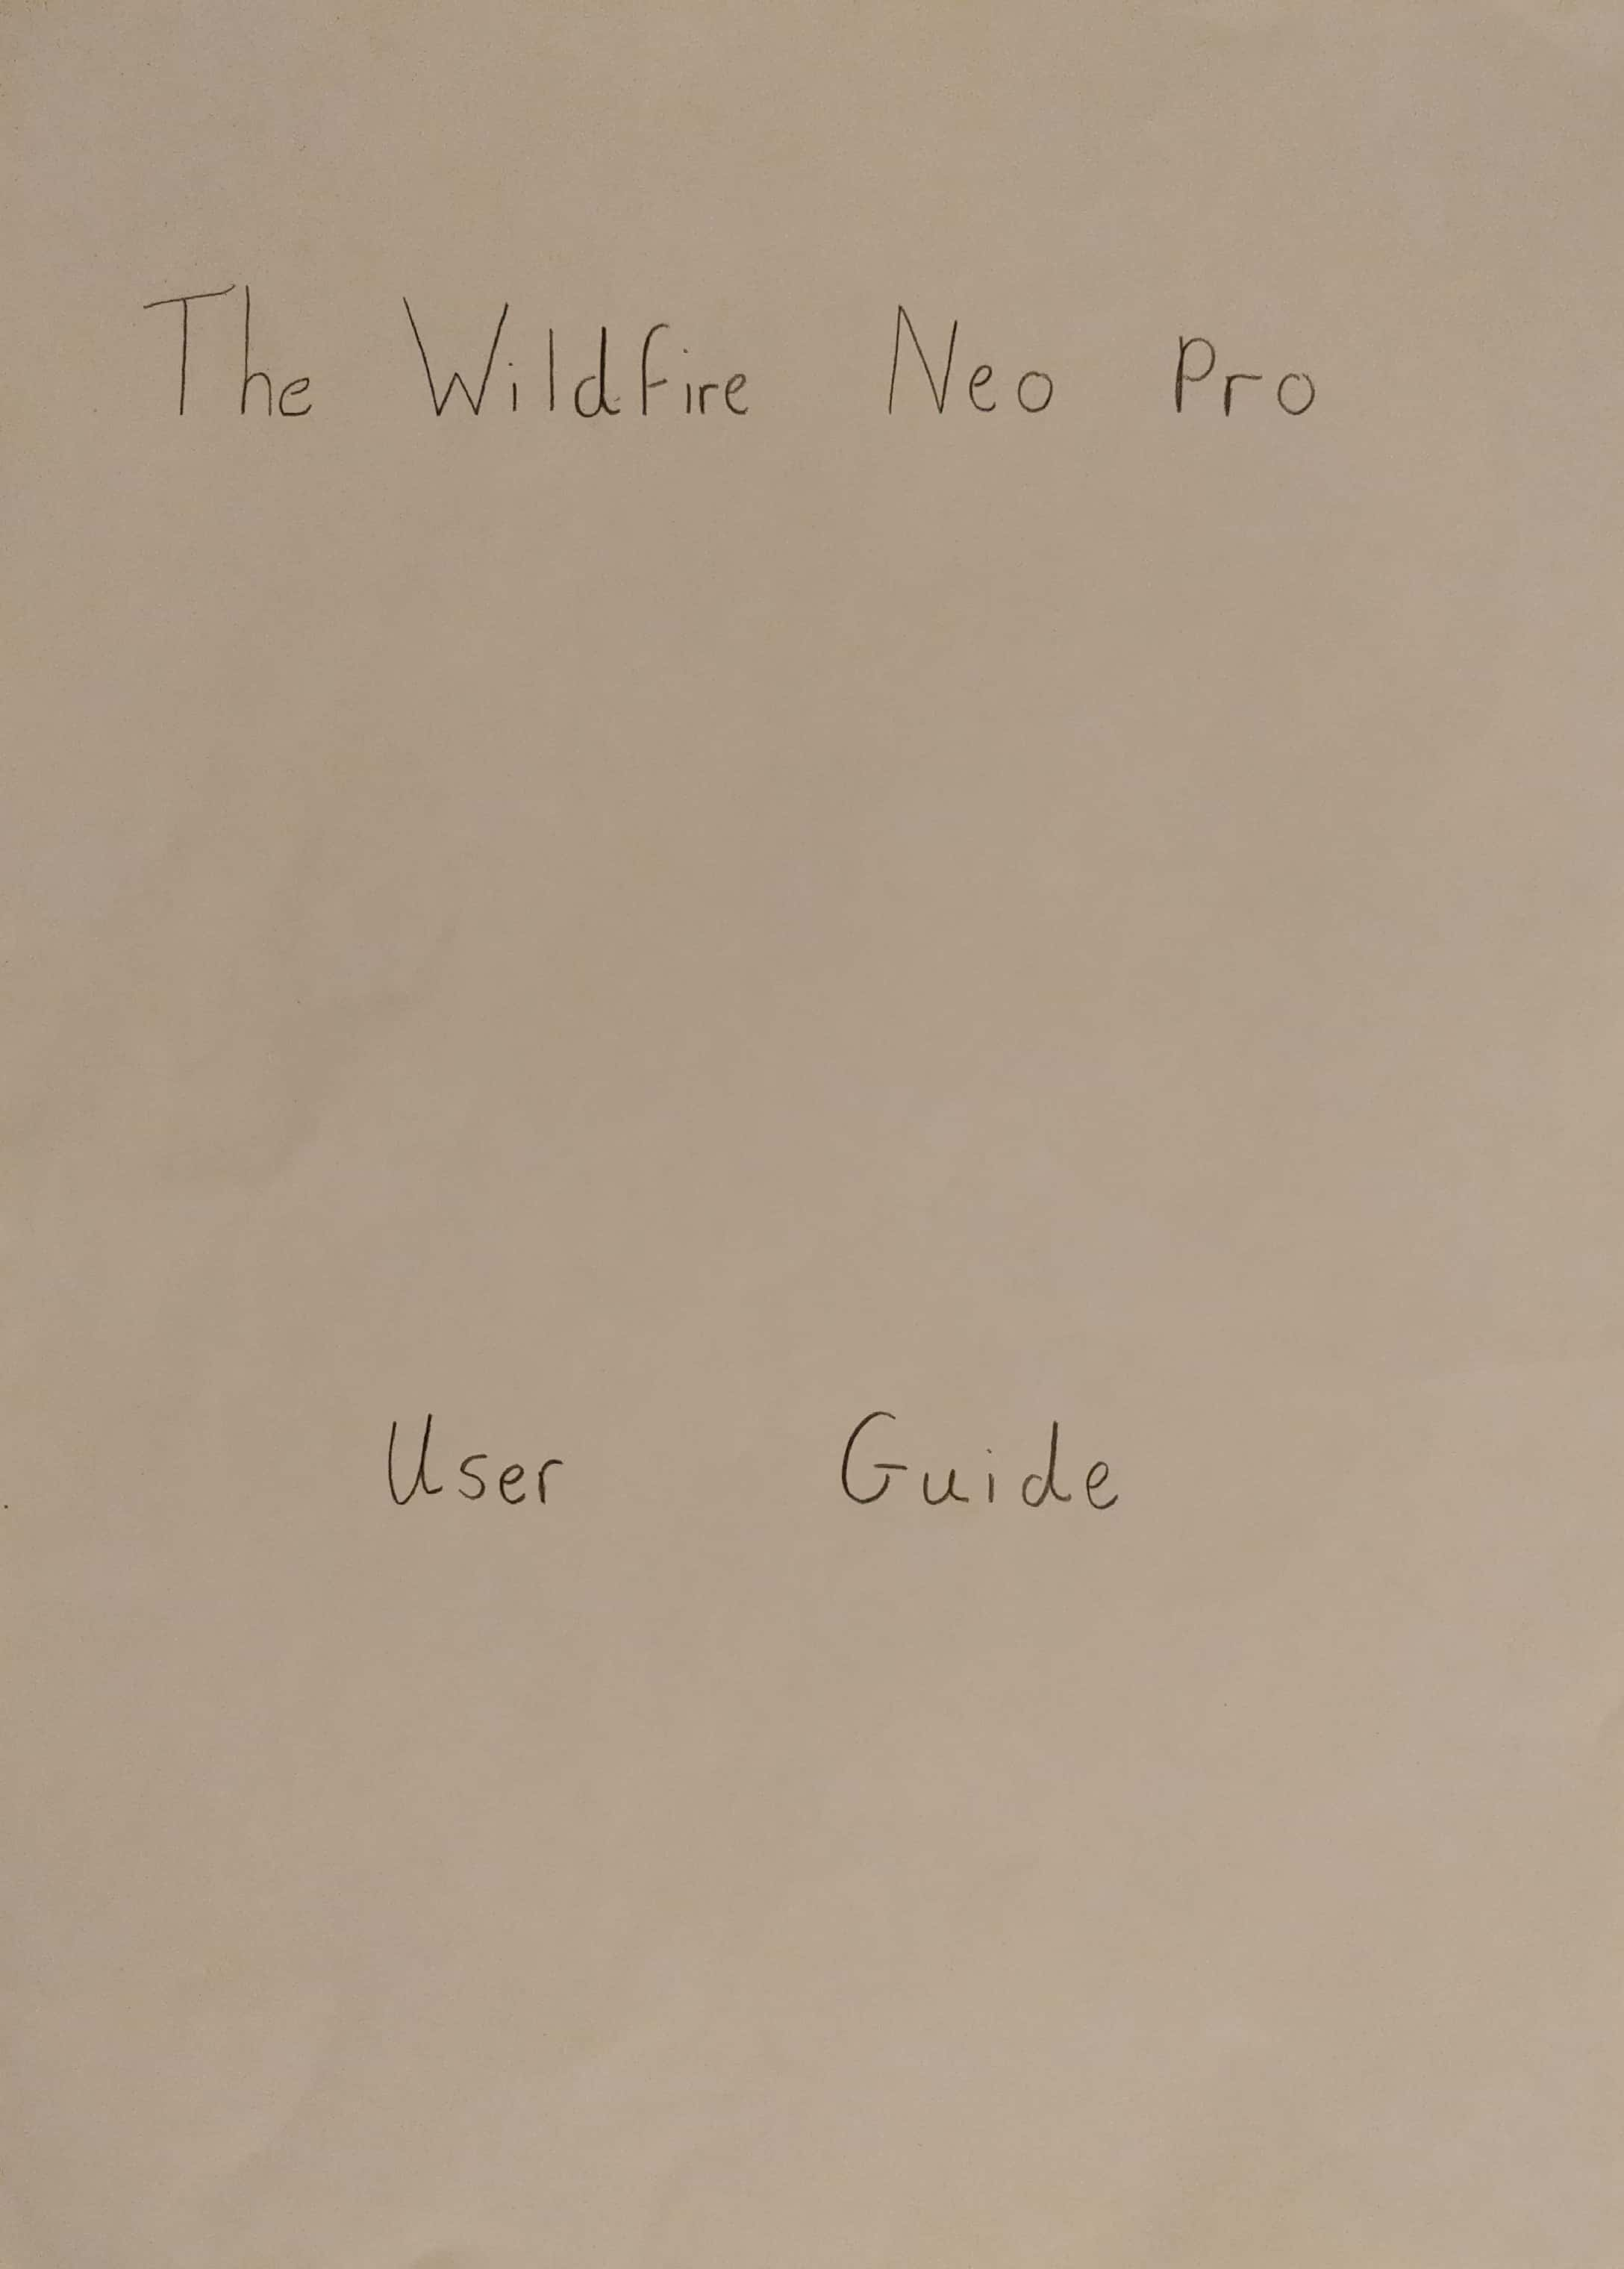 The Wildfire Neo Pro
User Guide